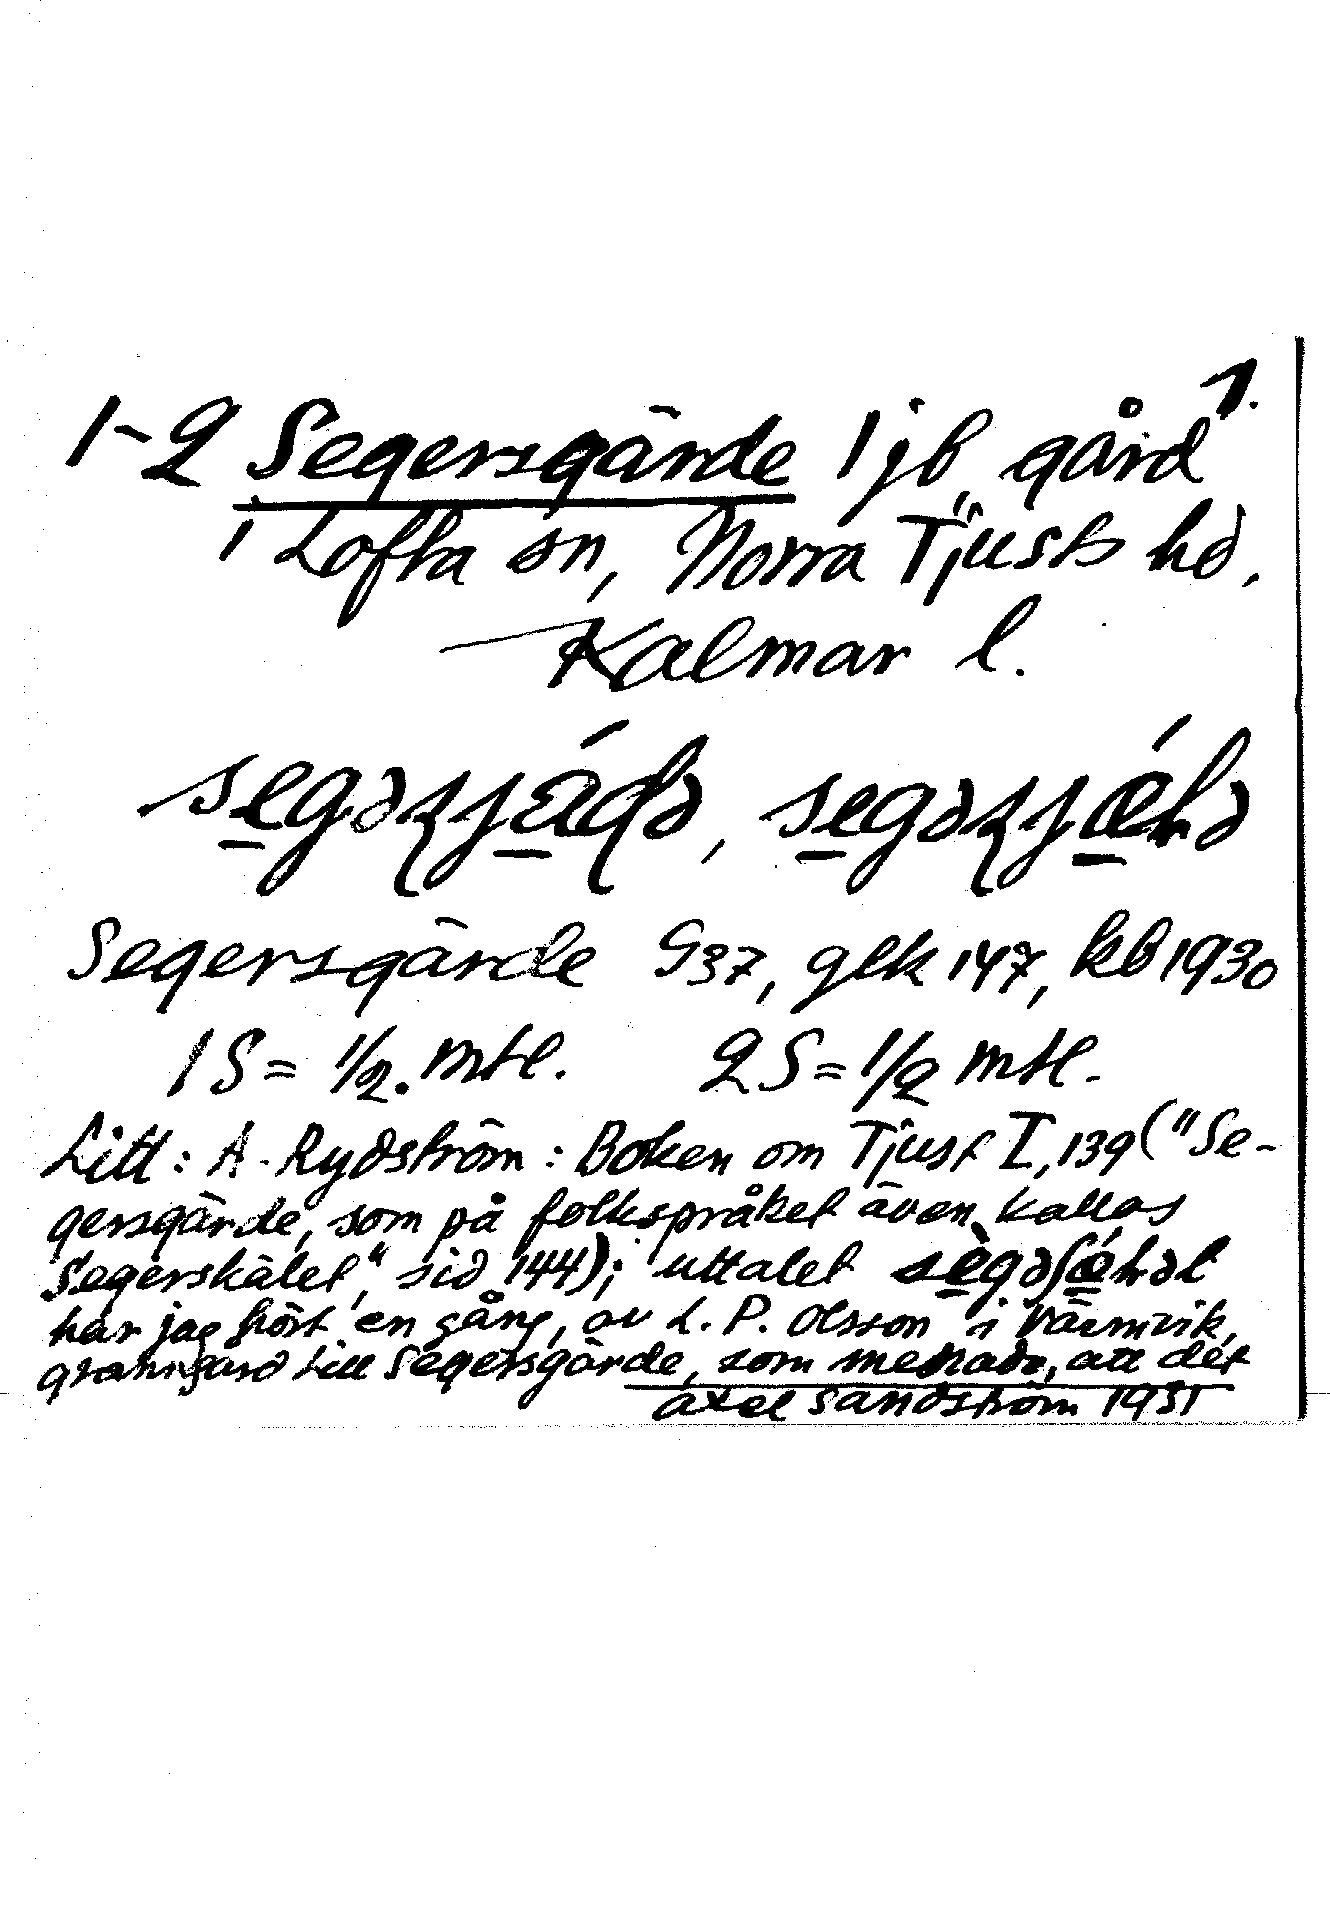 1.
1-2 Segersgärde 1 jb. gård
i Lofta sn, Norra Tjusts hd,
Kalmar l.
Segersgärde G37, glk 147, kb 1930
1 S = 1/2 mtl. 2 S = 1/2 mtl.
Litt: A. Rydström: Boken om Tjust I, 139 ("Se-
gersgärde, som på folkspråket även kallas
Segerskålet," sid 144); uttalet
har jag hört en gång, av L. P. Olsson i Värmvik,
granngård till Segersgärde, som menade, att det
Axel Sandström 1931